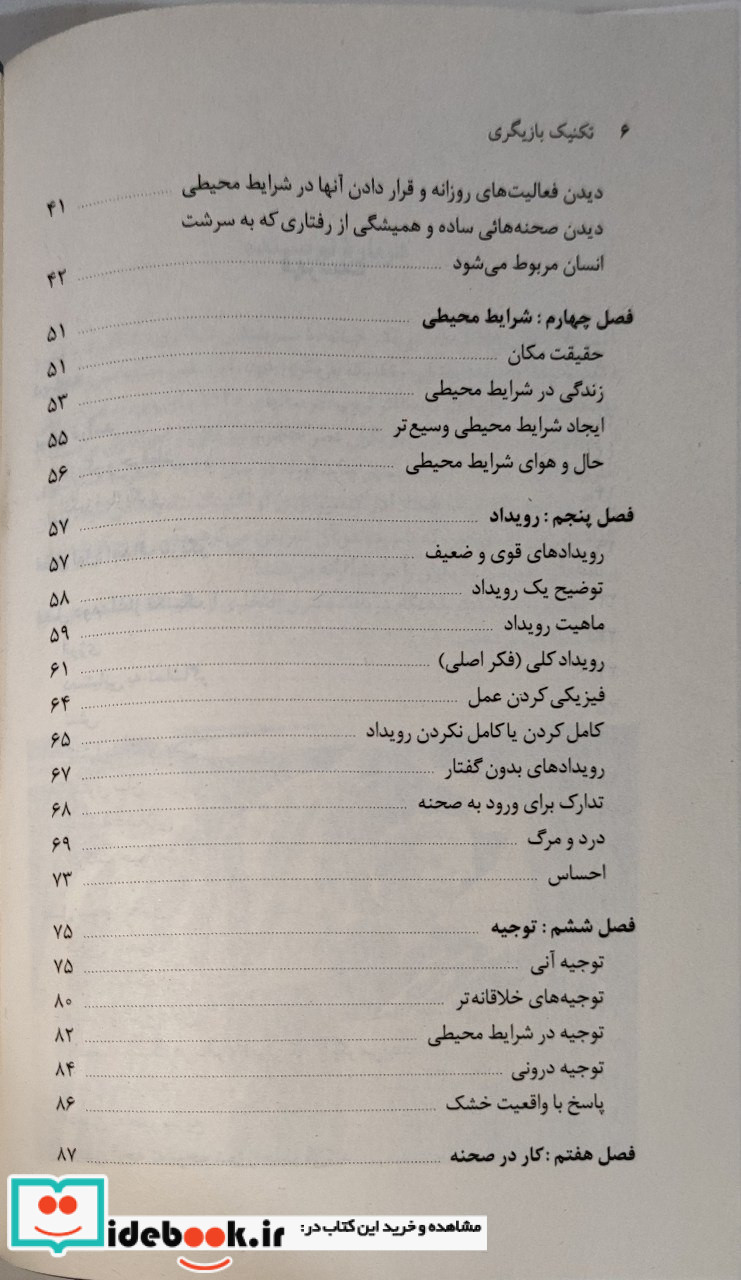 ۶ تکنیک بازیگری
دیدن فعالیت‌های روزانه و قرار دادن آنها در شرایط محیطی ۴۱
دیدن صحنه‌هائی ساده و همیشگی از رفتاری که به سرشت
انسان مربوط می‌شود ۴۲
فصل چهارم : شرایط محیطی ۵۱
حقیقت مکان ۵۱
زندگی در شرایط محیطی ۵۳
ایجاد شرایط محیطی وسیع‌تر ۵۵
حال و هوای شرایط محیطی ۵۶
فصل پنجم : رویداد ۵۷
رویدادهای قوی و ضعیف ۵۷
توضیح یک رویداد ۵۸
ماهیت رویداد ۵۹
رویداد کلی (فکر اصلی) ۶۱
فیزیکی کردن عمل ۶۴
کامل کردن یا کامل نکردن رویداد ۶۵
رویدادهای بدون گفتار ۶۷
تدارک برای ورود به صحنه ۶۸
درد و مرگ ۶۹
احساس ۷۳
فصل ششم : توجیه ۷۵
توجیه آنی ۷۵
توجیه‌های خلاقانه‌تر ۸۰
توجیه در شرایط محیطی ۸۲
توجیه درونی ۸۴
پاسخ با واقعیت خشک ۸۶
فصل هفتم : کار در صحنه ۸۷
مشاهده و خرید این کتاب در:
idebook.ir